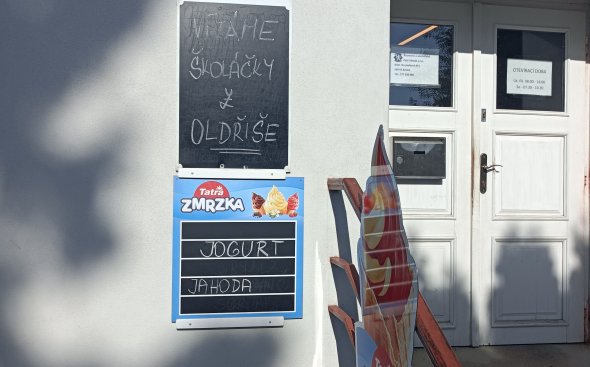 VÍTÁME
ŠKOLÁČKY
Z
OLDŘIŠE
Tatra
ZMRZKA
JOGURT
JAHODA
OTEVÍRACÍ DOBA